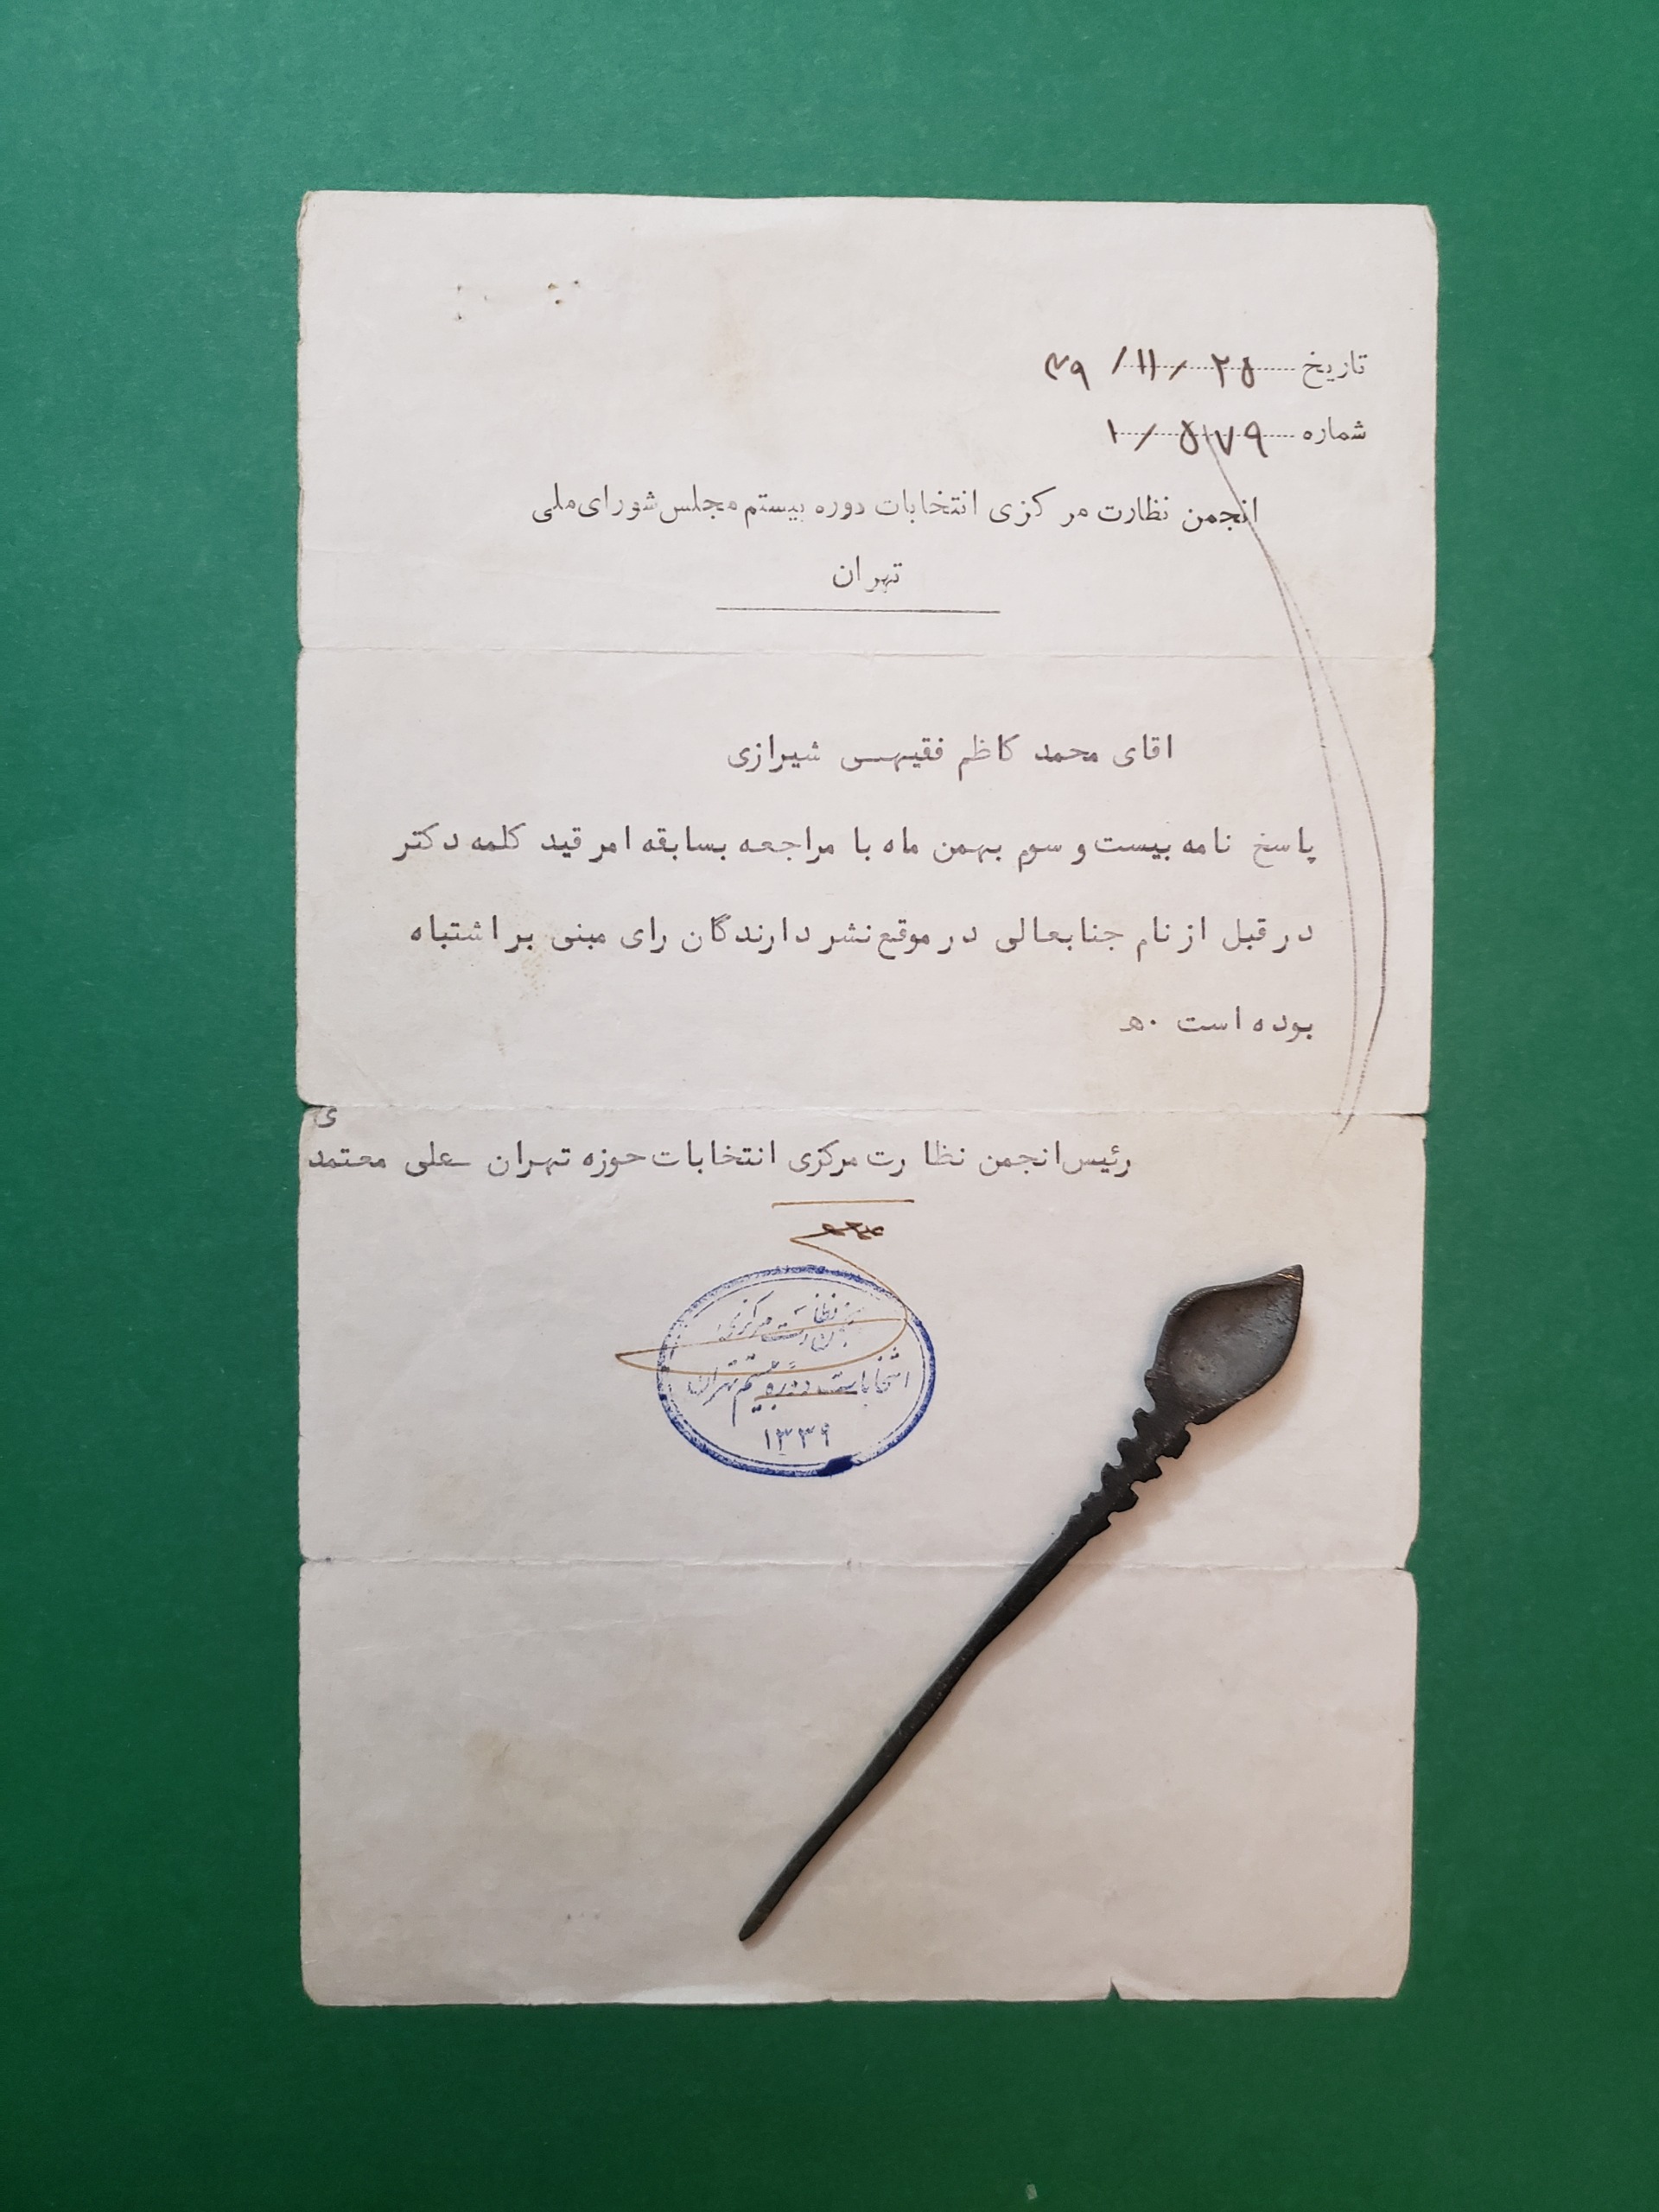 تاریخ ۲۵ / ۱۱ / ۳۹
شماره ۵۱۷۹ / ۱
انجمن نظارت مرکزی انتخابات دوره بیستم مجلس شورای ملی
تهران
اقای محمد کاظم فقیهی شیرازی
پاسخ نامه بیست و سوم بهمن ماه با مراجعه بسابقه امر قید کلمه دکتر
در قبل از نام جنابعالی در موقع نشر دارندگان رای مبنی بر اشتباه
بوده است ۰ه
رئیس انجمن نظارت مرکزی انتخابات حوزه تهران ـ علی معتمدی
انجمن نظارت مرکزی
انتخابات دوره بیستم تهران
۱۳۳۹